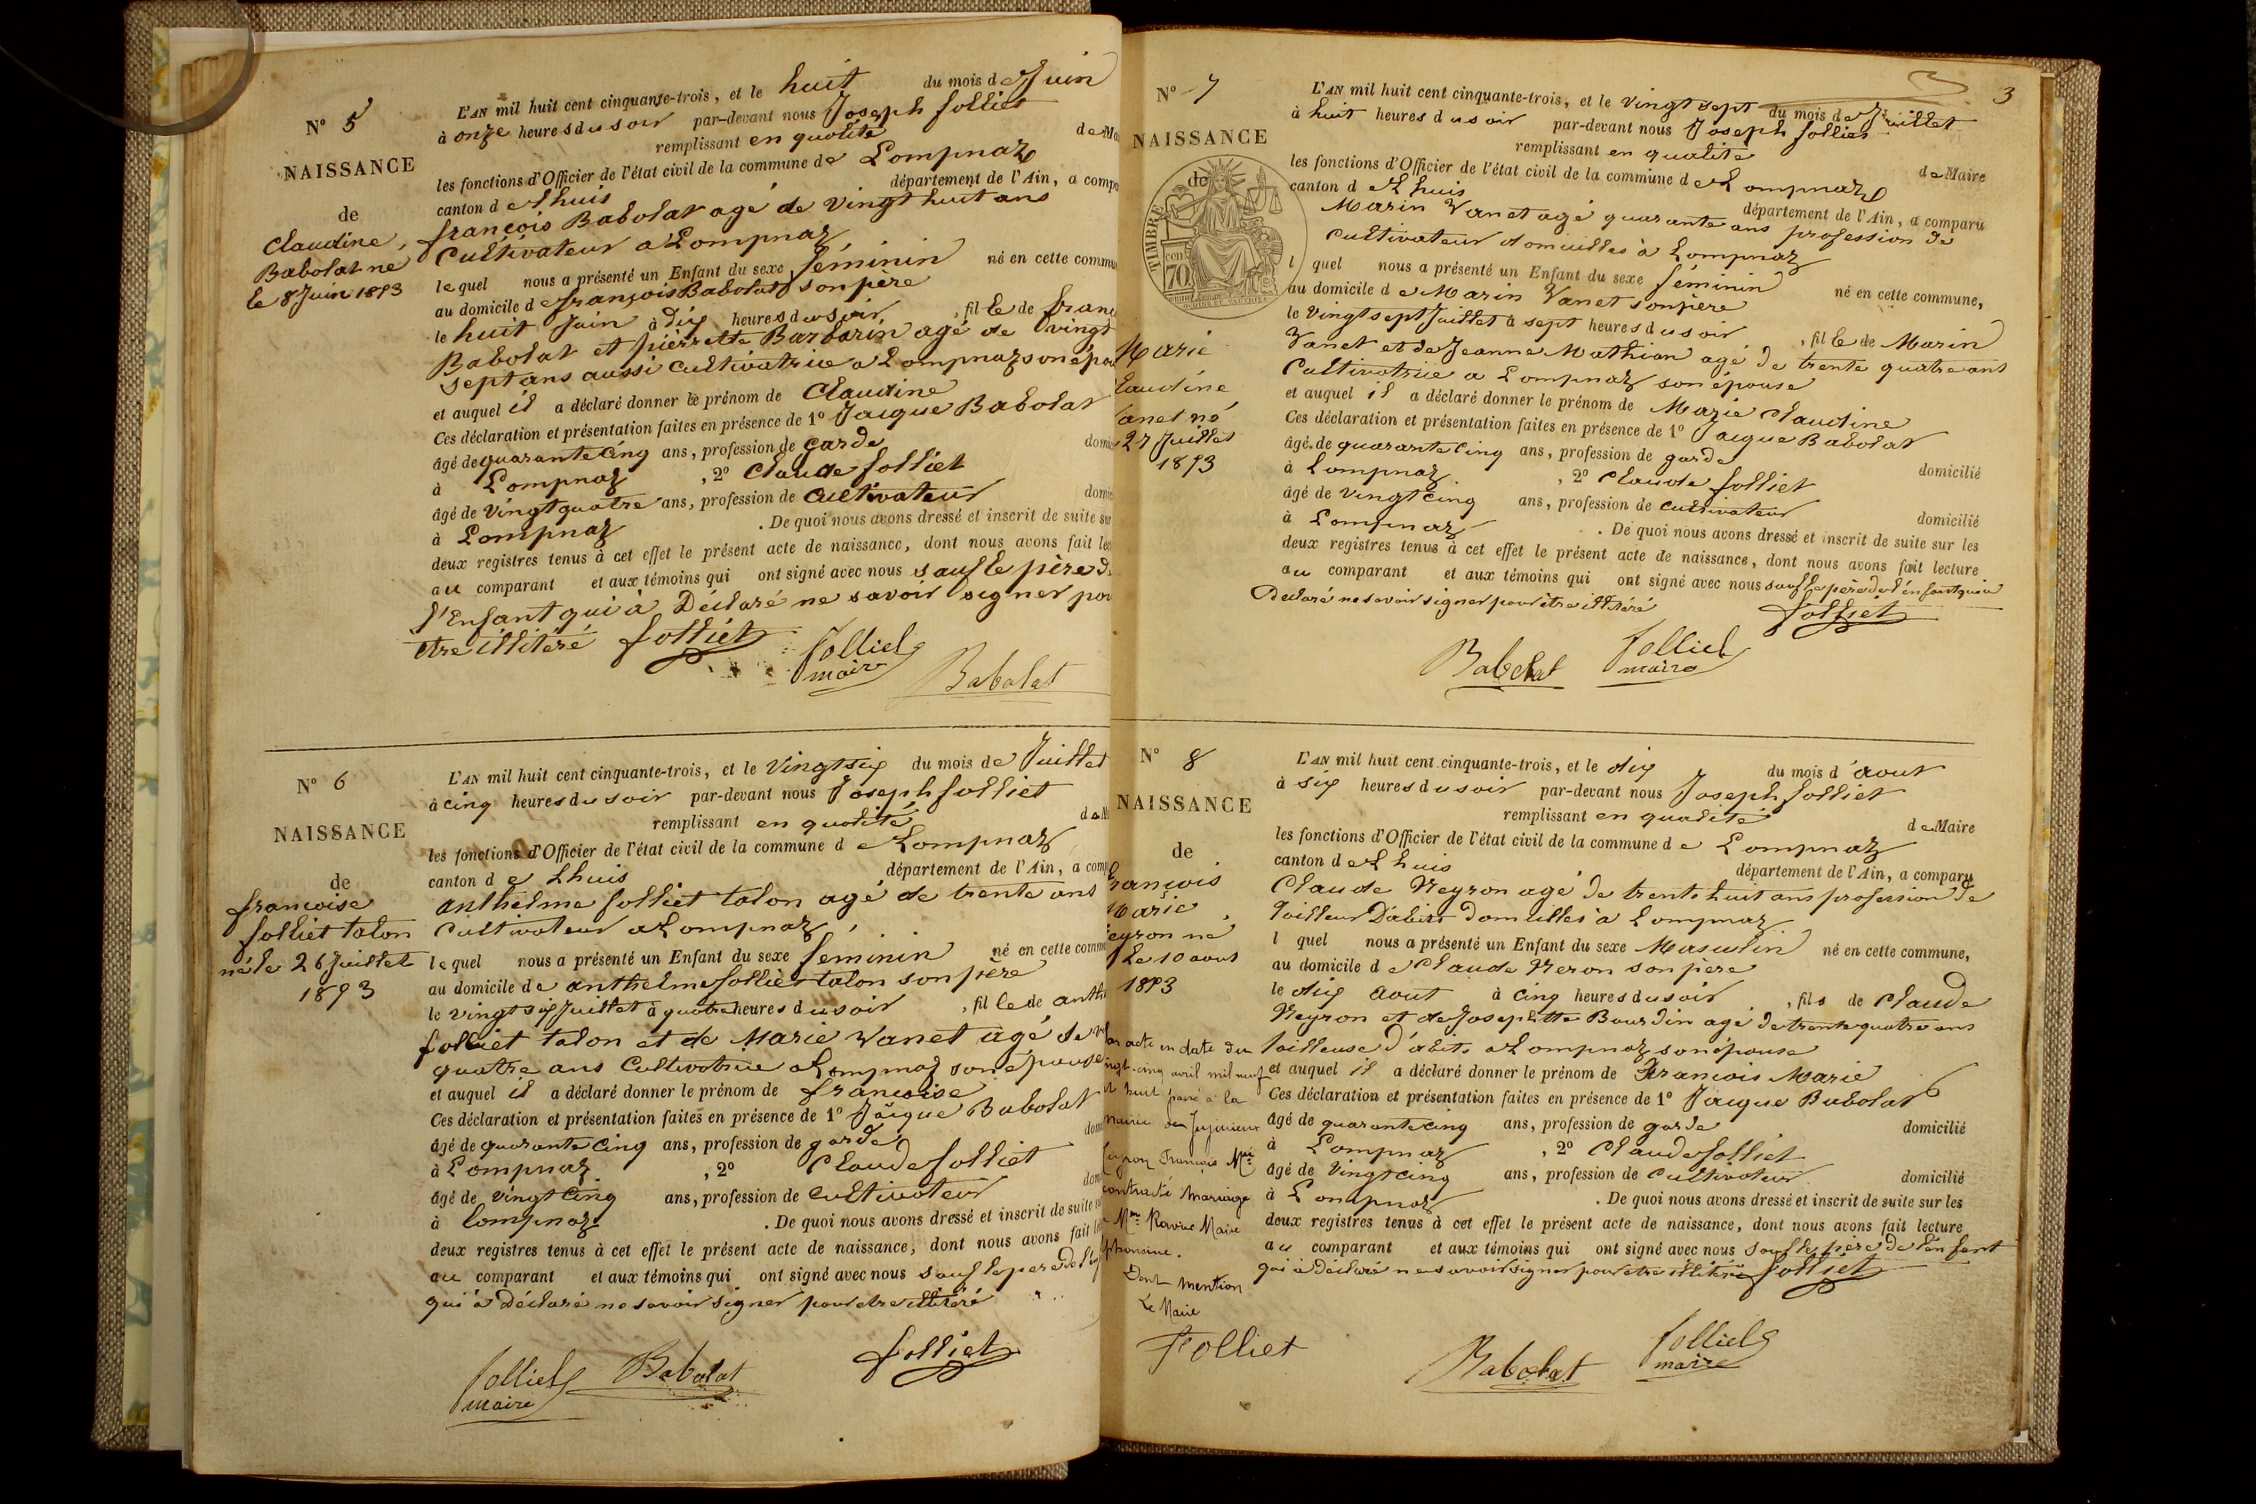 N° 5
NAISSANCE
de
Claudine
Babolat né
le 8 Juin 1853
L'AN mil huit cent cinquante-trois, et le huit du mois de Juin
à onze heures du soir par-devant nous Joseph folliet
remplissant en qualité de Ma
les fonctions d'Officier de l'état civil de la commune de Lompnaz
canton de Lhuis département de l'Ain, a compa
françois Babolat agé de vingt huit ans
Cultivateur a Lompnaz
lequel nous a présenté un Enfant du sexe féminin né en cette commu
au domicile de françois Babolat son père
le huit Juin à dix heures du soir, fille de franç
Babolat et pierrette Barbarin agé de vingt
sept ans aussi cultivatrice a Lompnaz son épou
et auquel il a déclaré donner le prénom de Claudine
Ces déclaration et présentation faites en présence de 1° Jacque Babolat
âgé de quarante cinq ans, profession de garde domi
à Lompnaz, 2° Claude folliet
âgé de vingt quatre ans, profession de cultivateur domi
à Lompnaz. De quoi nous avons dressé et inscrit de suite sur
deux registres tenus à cet effet le présent acte de naissance, dont nous avons fait lec
au comparant et aux témoins qui ont signé avec nous sauf le père d
l'Enfant qui à Déclaré ne savoir signer pou
etre illitéré folliet folliet
maire Babolat
N° 6
NAISSANCE
de
francoise
folliet talon
né le 26 Juillet
1853
L'AN mil huit cent cinquante-trois, et le Vingt six du mois de Juillet
à cinq heures du soir par-devant nous Joseph folliet
remplissant en qualité de M
les fonctions d'Officier de l'état civil de la commune de Lompnaz
canton de Lhuis département de l'Ain, a comp
anthelme folliet talon agé de trente ans
Cultivateur a Lompnaz
lequel nous a présenté un Enfant du sexe féminin né en cette commu
au domicile de anthelme folliet talon son père
le vingt six Juillet à quatre heures du soir, fille de anth
folliet talon et de Marie Vanet agé de
quatre ans Cultivatrice a Lompnaz son épouse
et auquel il a déclaré donner le prénom de francoise
Ces déclaration et présentation faites en présence de 1° Jacque Babolat
âgé de quarante cinq ans, profession de garde dom
à Lompnaz, 2° Claude folliet
âgé de vingt cinq ans, profession de Cultivateur dom
à Lompnaz. De quoi nous avons dressé et inscrit de suite
deux registres tenus à cet effet le présent acte de naissance, dont nous avons fait
au comparant et aux témoins qui ont signé avec nous sauf le pere de
qui à déclaré ne savoir signer pour etre illitéré
folliet
maire Babolat folliet
3
N° 7
NAISSANCE
de
TIMBRE
70 cen
Marie
Claudine
Vanet né
27 Juillet
1853
L'AN mil huit cent cinquante-trois, et le vingt sept du mois de Juillet
à huit heures du soir par-devant nous Joseph folliet
remplissant en qualité de Maire
les fonctions d'Officier de l'état civil de la commune de Lompnaz
canton de Lhuis département de l'Ain, a comparu
Marin Vanet agé quarante ans profession de
cultivateur domicilles à Lompnaz
l quel nous a présenté un Enfant du sexe féminin né en cette commune,
au domicile de Marin Vanet son père
le Vingt sept Juillet à sept heures du soir, fille de Marin
Vanet et de Jeanne Mathian agé de trente quatre ans
Cultivatrice a Lompnaz son épouse
et auquel il a déclaré donner le prénom de Marie Claudine
Ces déclaration et présentation faites en présence de 1° Jacque Babolat
âgé de quarante cinq ans, profession de garde domicilié
à Lompnaz, 2° Claude folliet
âgé de vingt cinq ans, profession de cultivateur domicilié
à Lompnaz. De quoi nous avons dressé et inscrit de suite sur les
deux registres tenus à cet effet le présent acte de naissance, dont nous avons fait lecture
au comparant et aux témoins qui ont signé avec nous sauf le père de l'énfant qui a
Déclaré ne savoir signer pour être illitéré folliet
Babolat folliet
maire
N° 8
NAISSANCE
de
françois
Marie
eyron né
le 10 aout
1853
L'AN mil huit cent cinquante-trois, et le dix du mois d'aout
à six heures du soir par-devant nous Joseph folliet
remplissant en qualité de Maire
les fonctions d'Officier de l'état civil de la commune de Lompnaz
canton de Lhuis département de l'Ain, a comparu
Claude Neyron agé de trente huit ans profession de
tailleur D'abits domicilles à Lompnaz
l quel nous a présenté un Enfant du sexe Masculin né en cette commune,
au domicile de Claude Neron son père
le dix aout à cinq heures du soir, fils de Claude
Neyron et de Josephtte Bourdin agé de trente quatre ans
tailleuse d'abits a Lompnaz son épouse
et auquel il a déclaré donner le prénom de François Marie
Ces déclaration et présentation faites en présence de 1° Jacque Babolat
âgé de quarante cinq ans, profession de garde domicilié
à Lompnaz, 2° Claude folliet
âgé de vingt cinq ans, profession de cultivateur domicilié
à Lompnaz. De quoi nous avons dressé et inscrit de suite sur les
deux registres tenus à cet effet le présent acte de naissance, dont nous avons fait lecture
au comparant et aux témoins qui ont signé avec nous sauf le père de l'énfant
qui à déclaré ne savoir signer pour etre illitéré folliet
acte en date du
ingt-cinq avril mil neuf
t huit passé à la
mairie de Jujurieux
François Mie
contracté mariage
Mme Marie
Dont mention
Le Maire
Folliet
Babolat folliet
maire